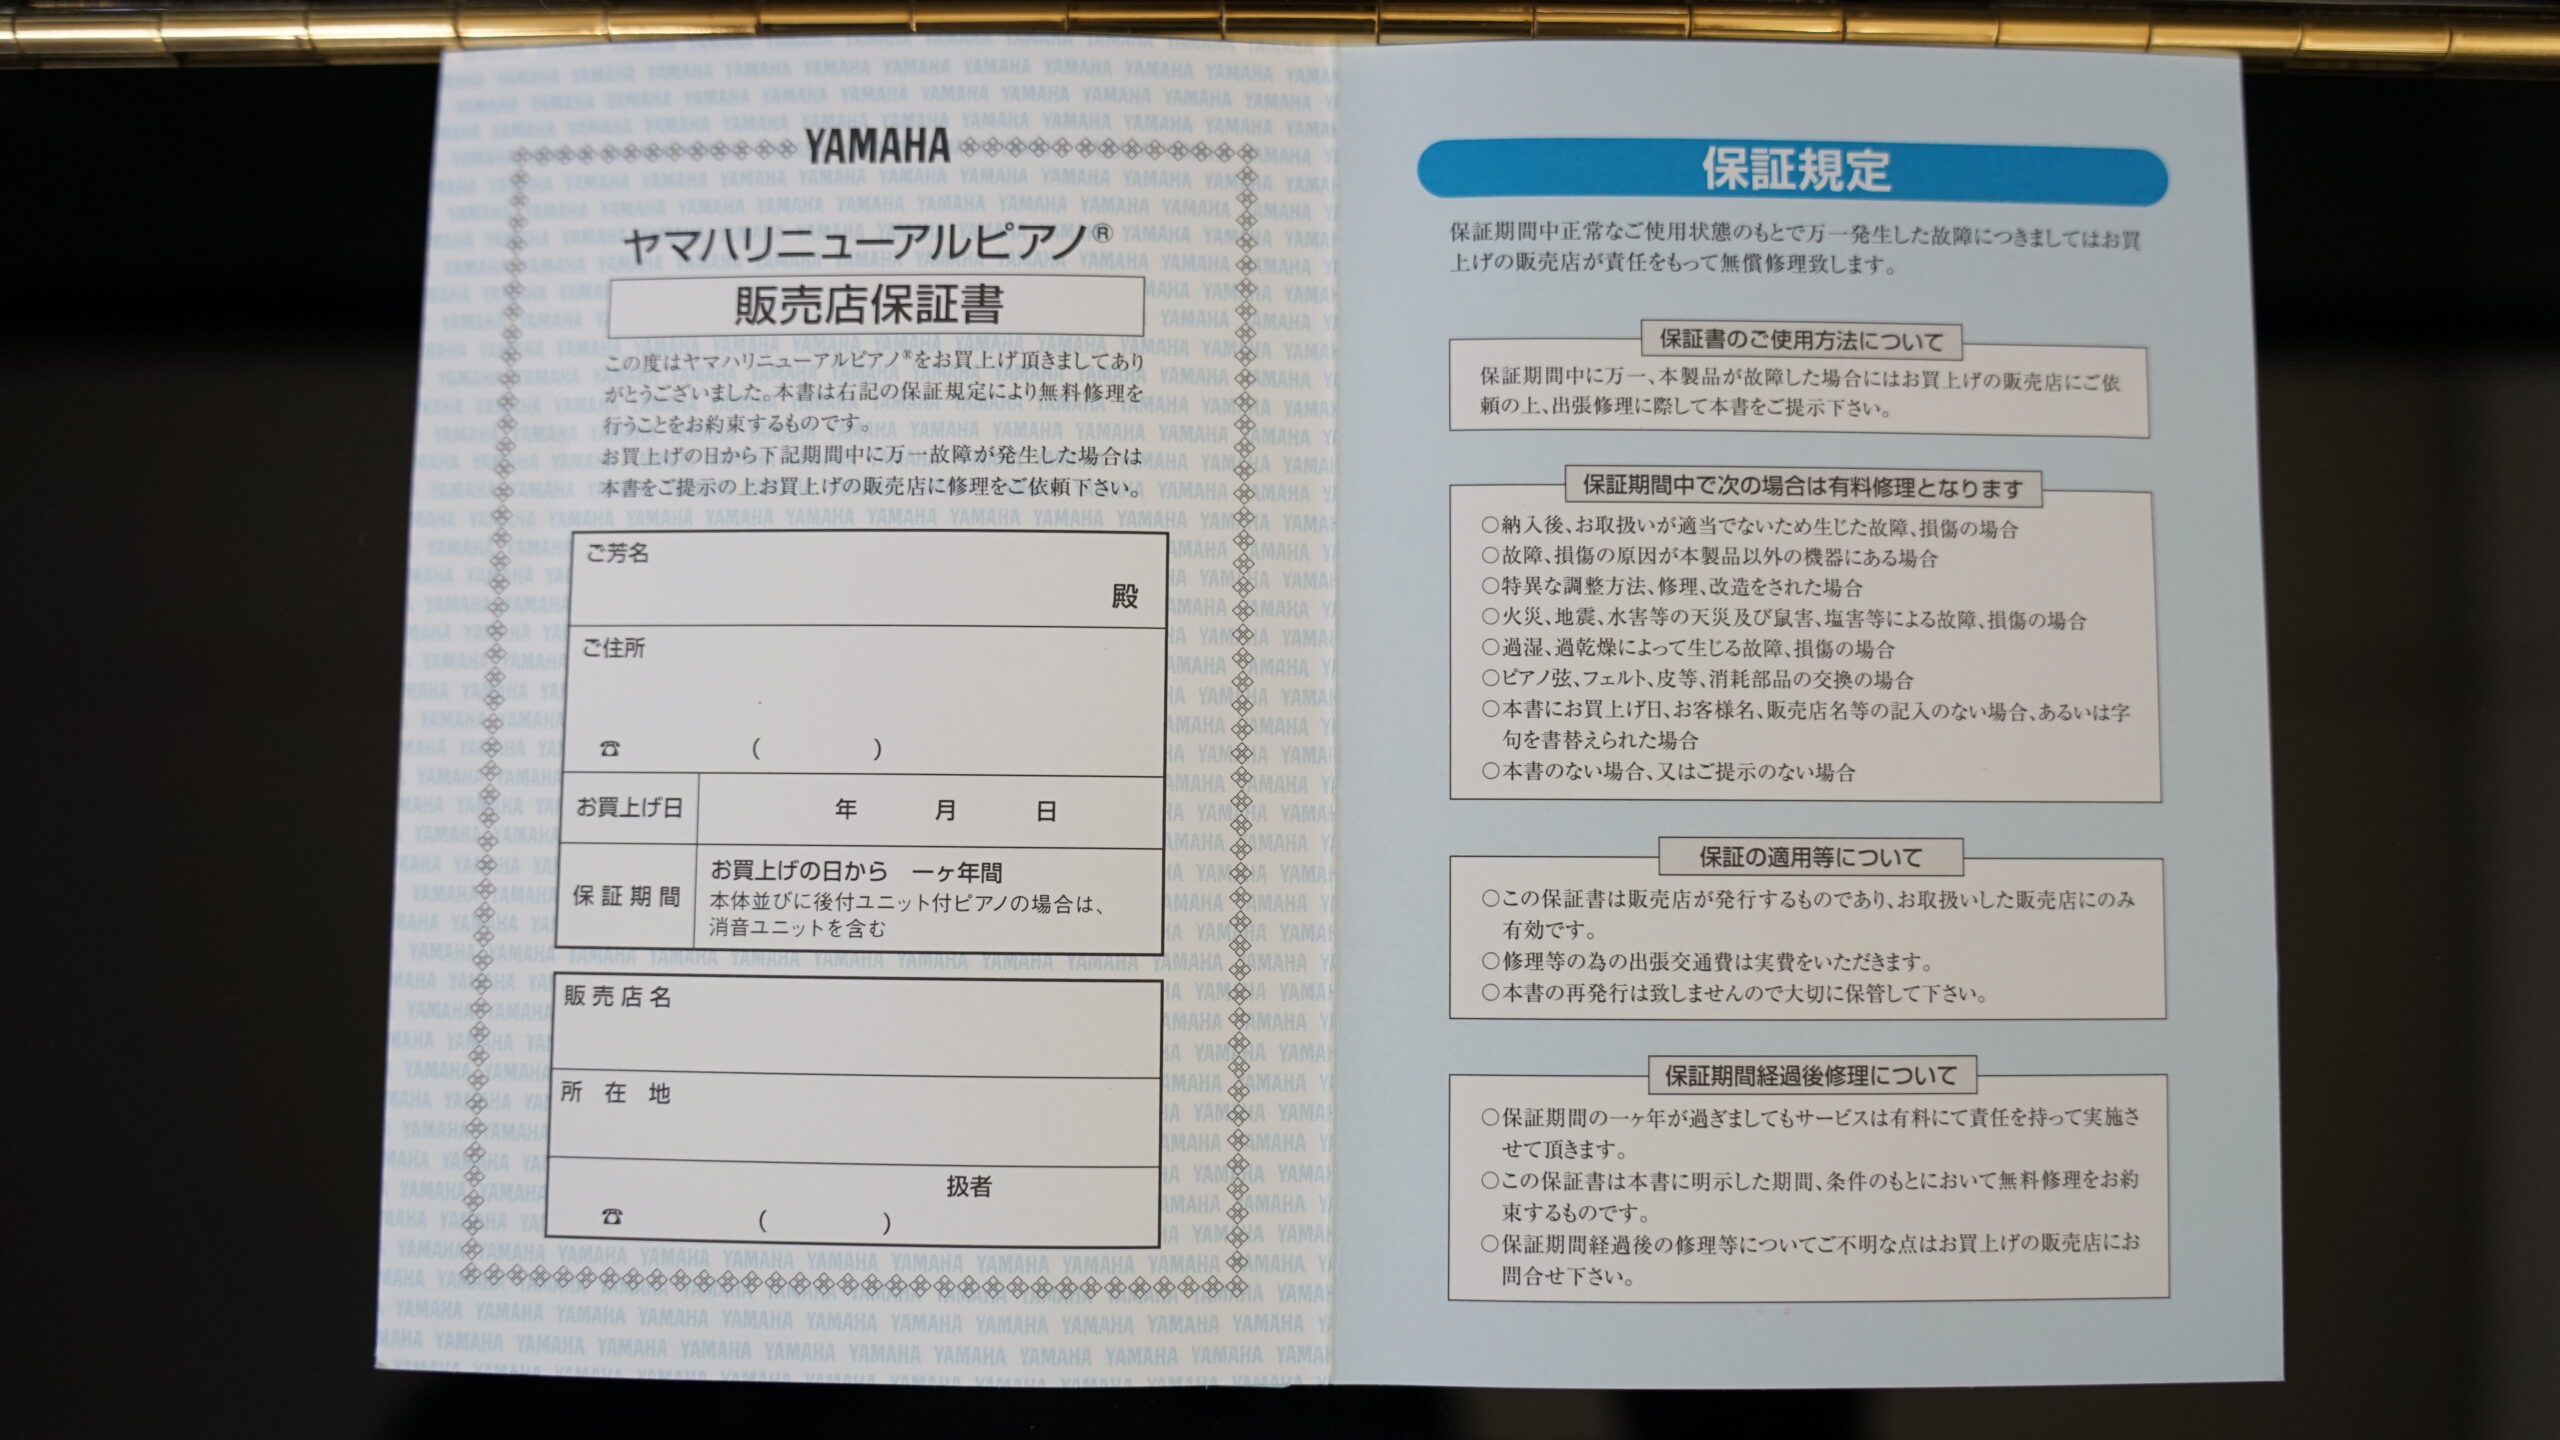 YAMAHA
ヤマハリニューアルピアノ®
販売店保証書
この度はヤマハリニューアルピアノ®をお買上げ頂きましてあり
がとうございました。本書は右記の保証規定により無料修理を
行うことをお約束するものです。
お買上げの日から下記期間中に万一故障が発生した場合は
本書をご提示の上お買上げの販売店に修理をご依頼下さい。
ご芳名
殿
ご住所
☎ ( )
お買上げ日 年 月 日
保証期間
お買上げの日から 一ヶ年間
本体並びに後付ユニット付ピアノの場合は、
消音ユニットを含む
販売店名
所在地
扱者
☎ ( )
保証規定
保証期間中正常なご使用状態のもとで万一発生した故障につきましてはお買
上げの販売店が責任をもって無償修理致します。
保証書のご使用方法について
保証期間中に万一、本製品が故障した場合にはお買上げの販売店にご依
頼の上、出張修理に際して本書をご提示下さい。
保証期間中で次の場合は有料修理となります
○納入後、お取扱いが適当でないため生じた故障、損傷の場合
○故障、損傷の原因が本製品以外の機器にある場合
○特異な調整方法、修理、改造をされた場合
○火災、地震、水害等の天災及び鼠害、塩害等による故障、損傷の場合
○過湿、過乾燥によって生じる故障、損傷の場合
○ピアノ弦、フェルト、皮等、消耗部品の交換の場合
○本書にお買上げ日、お客様名、販売店名等の記入のない場合、あるいは字
句を書替えられた場合
○本書のない場合、又はご提示のない場合
保証の適用等について
○この保証書は販売店が発行するものであり、お取扱いした販売店にのみ
有効です。
○修理等の為の出張交通費は実費をいただきます。
○本書の再発行は致しませんので大切に保管して下さい。
保証期間経過後修理について
○保証期間の一ヶ年が過ぎましてもサービスは有料にて責任を持って実施さ
せて頂きます。
○この保証書は本書に明示した期間、条件のもとにおいて無料修理をお約
束するものです。
○保証期間経過後の修理等についてご不明な点はお買上げの販売店にお
問合せ下さい。